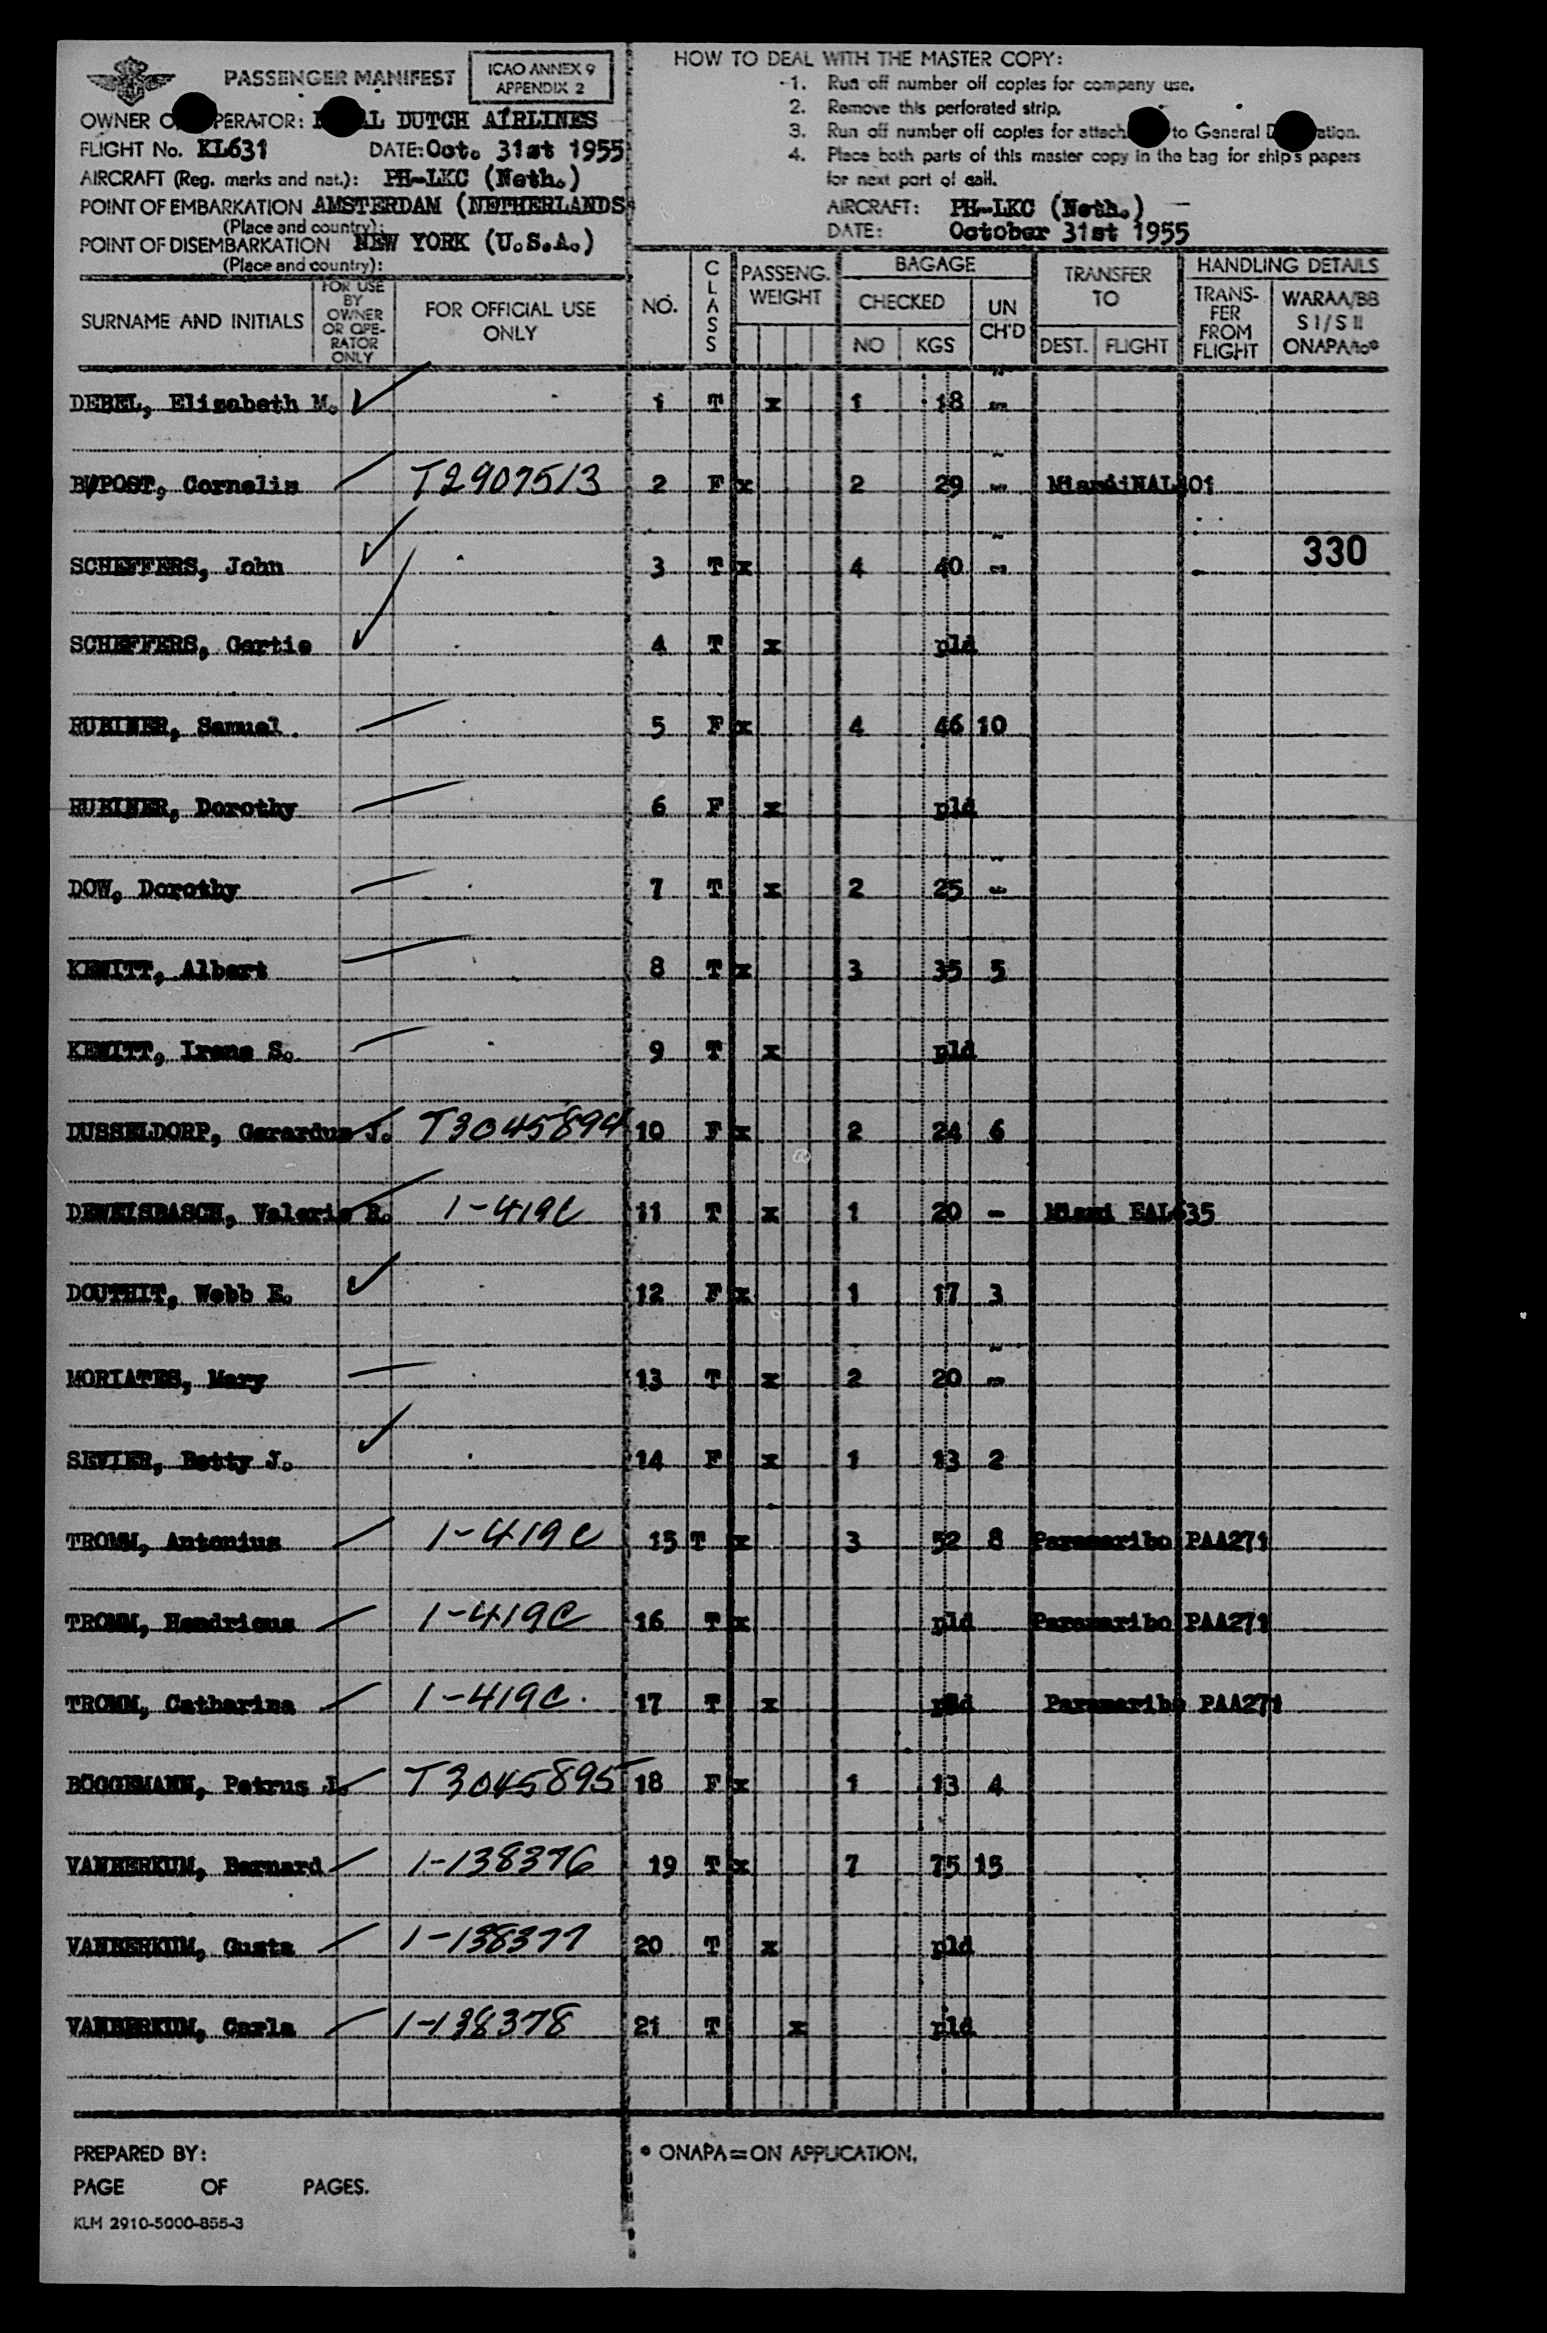 PASSENGER MANIFEST
ICAO ANNEX 9
APPENDIX 2
OWNER O PERATOR: L DUTCH AIRLINES
FLIGHT No. KL631 DATE: Oct. 31st 1955
AIRCRAFT (Reg. marks and nat.): PH-LKC (Neth.)
POINT OF EMBARKATION AMSTERDAM (NETHERLANDS
(Place and country):
POINT OF DISEMBARKATION NEW YORK (U.S.A.)
(Place and country):
HOW TO DEAL WITH THE MASTER COPY:
1. Run off number off copies for company use.
2. Remove this perforated strip.
3. Run off number off copies for attach to General D ation.
4. Place both parts of this master copy in the bag for ship's papers
for next port of call.
AIRCRAFT: PH-LKC (Neth.)
DATE: October 31st 1955
SURNAME AND INITIALS
FOR USE BY OWNER OR OPE-RATOR ONLY
FOR OFFICIAL USE ONLY
NO.
CLASS
PASSENG. WEIGHT
BAGAGE
CHECKED
NO KGS
UN CH'D
TRANSFER TO
DEST. FLIGHT
HANDLING DETAILS
TRANS-FER FROM FLIGHT
WARAA/BB
S I / S II
ONAPA/to*
DEBEL, Elizabeth M. 1 T x 1 18 -
B/POST, Cornelis T2907513 2 F x 2 29 - Miami NAL 401
330
SCHEFFERS, John 3 T x 4 40 -
SCHEFFERS, Gertie 4 T x pld
RUBINER, Samuel. 5 F x 4 46 10
RUBINER, Dorothy 6 F x pld
DOW, Dorothy 7 T x 2 25 -
KEWITT, Albert 8 T x 3 35 5
KEWITT, Irene S. 9 T x pld
DUSSELDORP, Gerardus J. T3045894 10 F x 2 24 6
Valerie R. 1-419C 11 T x 1 20 - Miami EAL 635
DOUTHIT, Webb E. 12 F x 1 17 3
MORIATES, Mary 13 T x 2 20 -
SEVIER, Betty J. 14 F x 1 13 2
TROMM, Antonius 1-419C 15 T x 3 52 8 Paramaribo PAA271
TROMM, Hendricus 1-419C 16 T x pld Paramaribo PAA271
TROMM, Catharina 1-419C. 17 T x pld Paramaribo PAA271
BÖGGEMANN, Petrus J. T3045895 18 F x 1 13 4
VANBERKUM, Bernard 1-138376 19 T x 7 75 15
VANBERKUM, Gusta 1-138377 20 T x pld
VANBERKUM, Carla 1-138378 21 T x pld
PREPARED BY:
PAGE OF PAGES.
KLM 2910-5000-855-3
* ONAPA = ON APPLICATION.